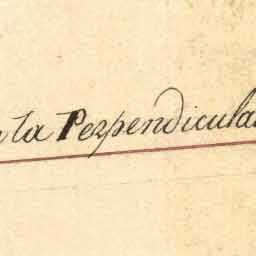 la Perpendicular